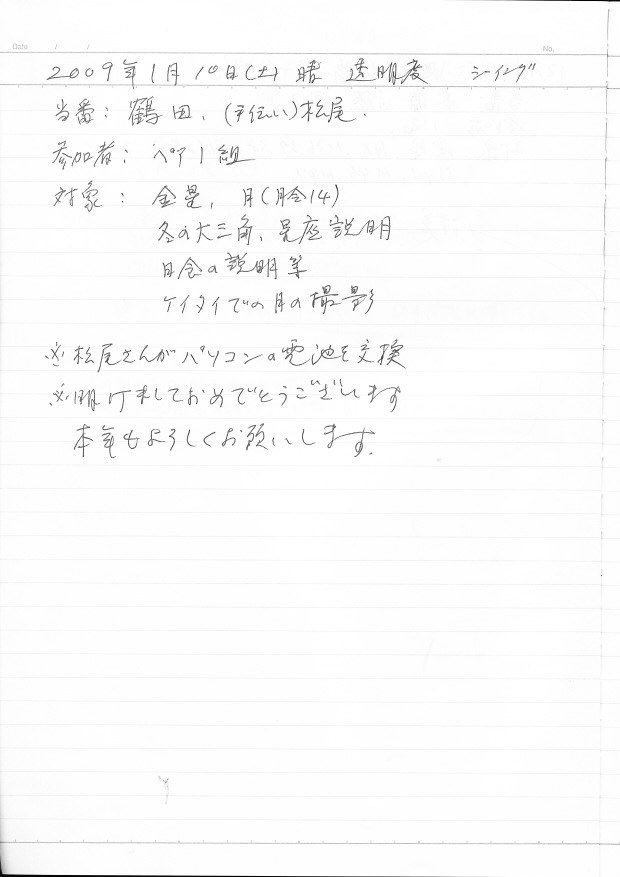 Date / /
No.
2009年1月10日(土) 晴 透明度 シーイング
当番: 鶴田、(手伝い)松尾.
参加者: ペア1組
対象: 金星, 月(月令14)
冬の大三角、星座説明
日食の説明等
ケイタイでの月の撮影
※松尾さんがパソコンの電池を交換
※明けましておめでとうございます
本年もよろしくお願いします.